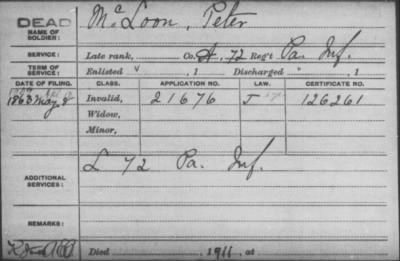 DEAD Mc Loon, Peter
NAME OF SOLDIER:
SERVICE: Late rank, Co. A, 72 Reg't Pa. Inf.
TERM OF SERVICE: Enlisted , 1 Discharged , 1
DATE OF FILING. CLASS. APPLICATION NO. LAW. CERTIFICATE NO.
1863 May 8 Invalid, 21676 J 126261
Widow,
Minor,
ADDITIONAL SERVICES: L 72 Pa. Inf.
REMARKS:
Died , 1911, at